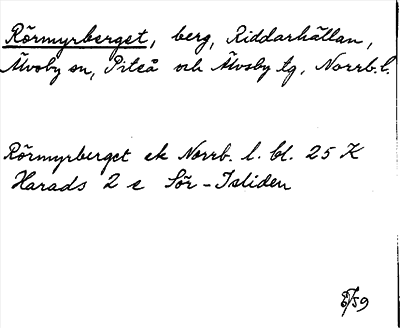 Rörmyrberget, berg, Riddarhällan,
Älvsby sn, Piteå och Älvsby tg, Norrb. l.
Rörmyrberget ek Norrb. l. bl. 25 K
Harads 2 e Sör-Isliden
/59